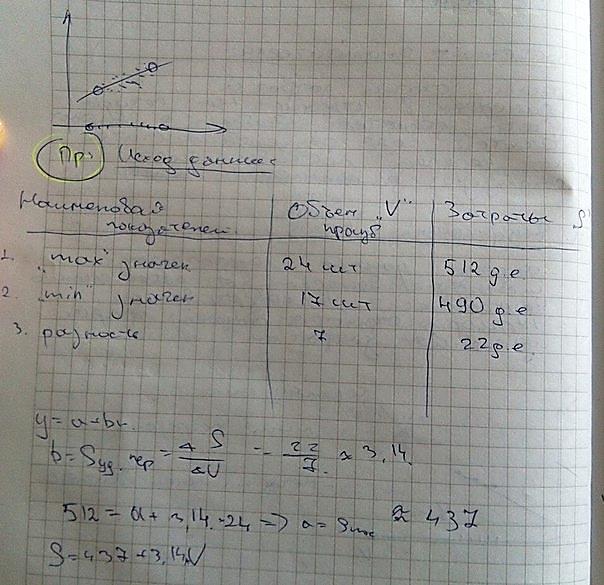 Пр: Исход данные
Наименовая показателей | Объем "V" произв | Затраты S
1. "max" значен | 24 шт | 512 д.е
2. "min" значен | 17 шт | 490 д.е
3. разность | 7 | 22 д.е.
y = a + bx
b = Sуд. пер = ΔS/ΔV = 22/7 ≈ 3,14.
512 = a + 3,14 · 24 => a = Sпос ≈ 437
S = 437 + 3,14V